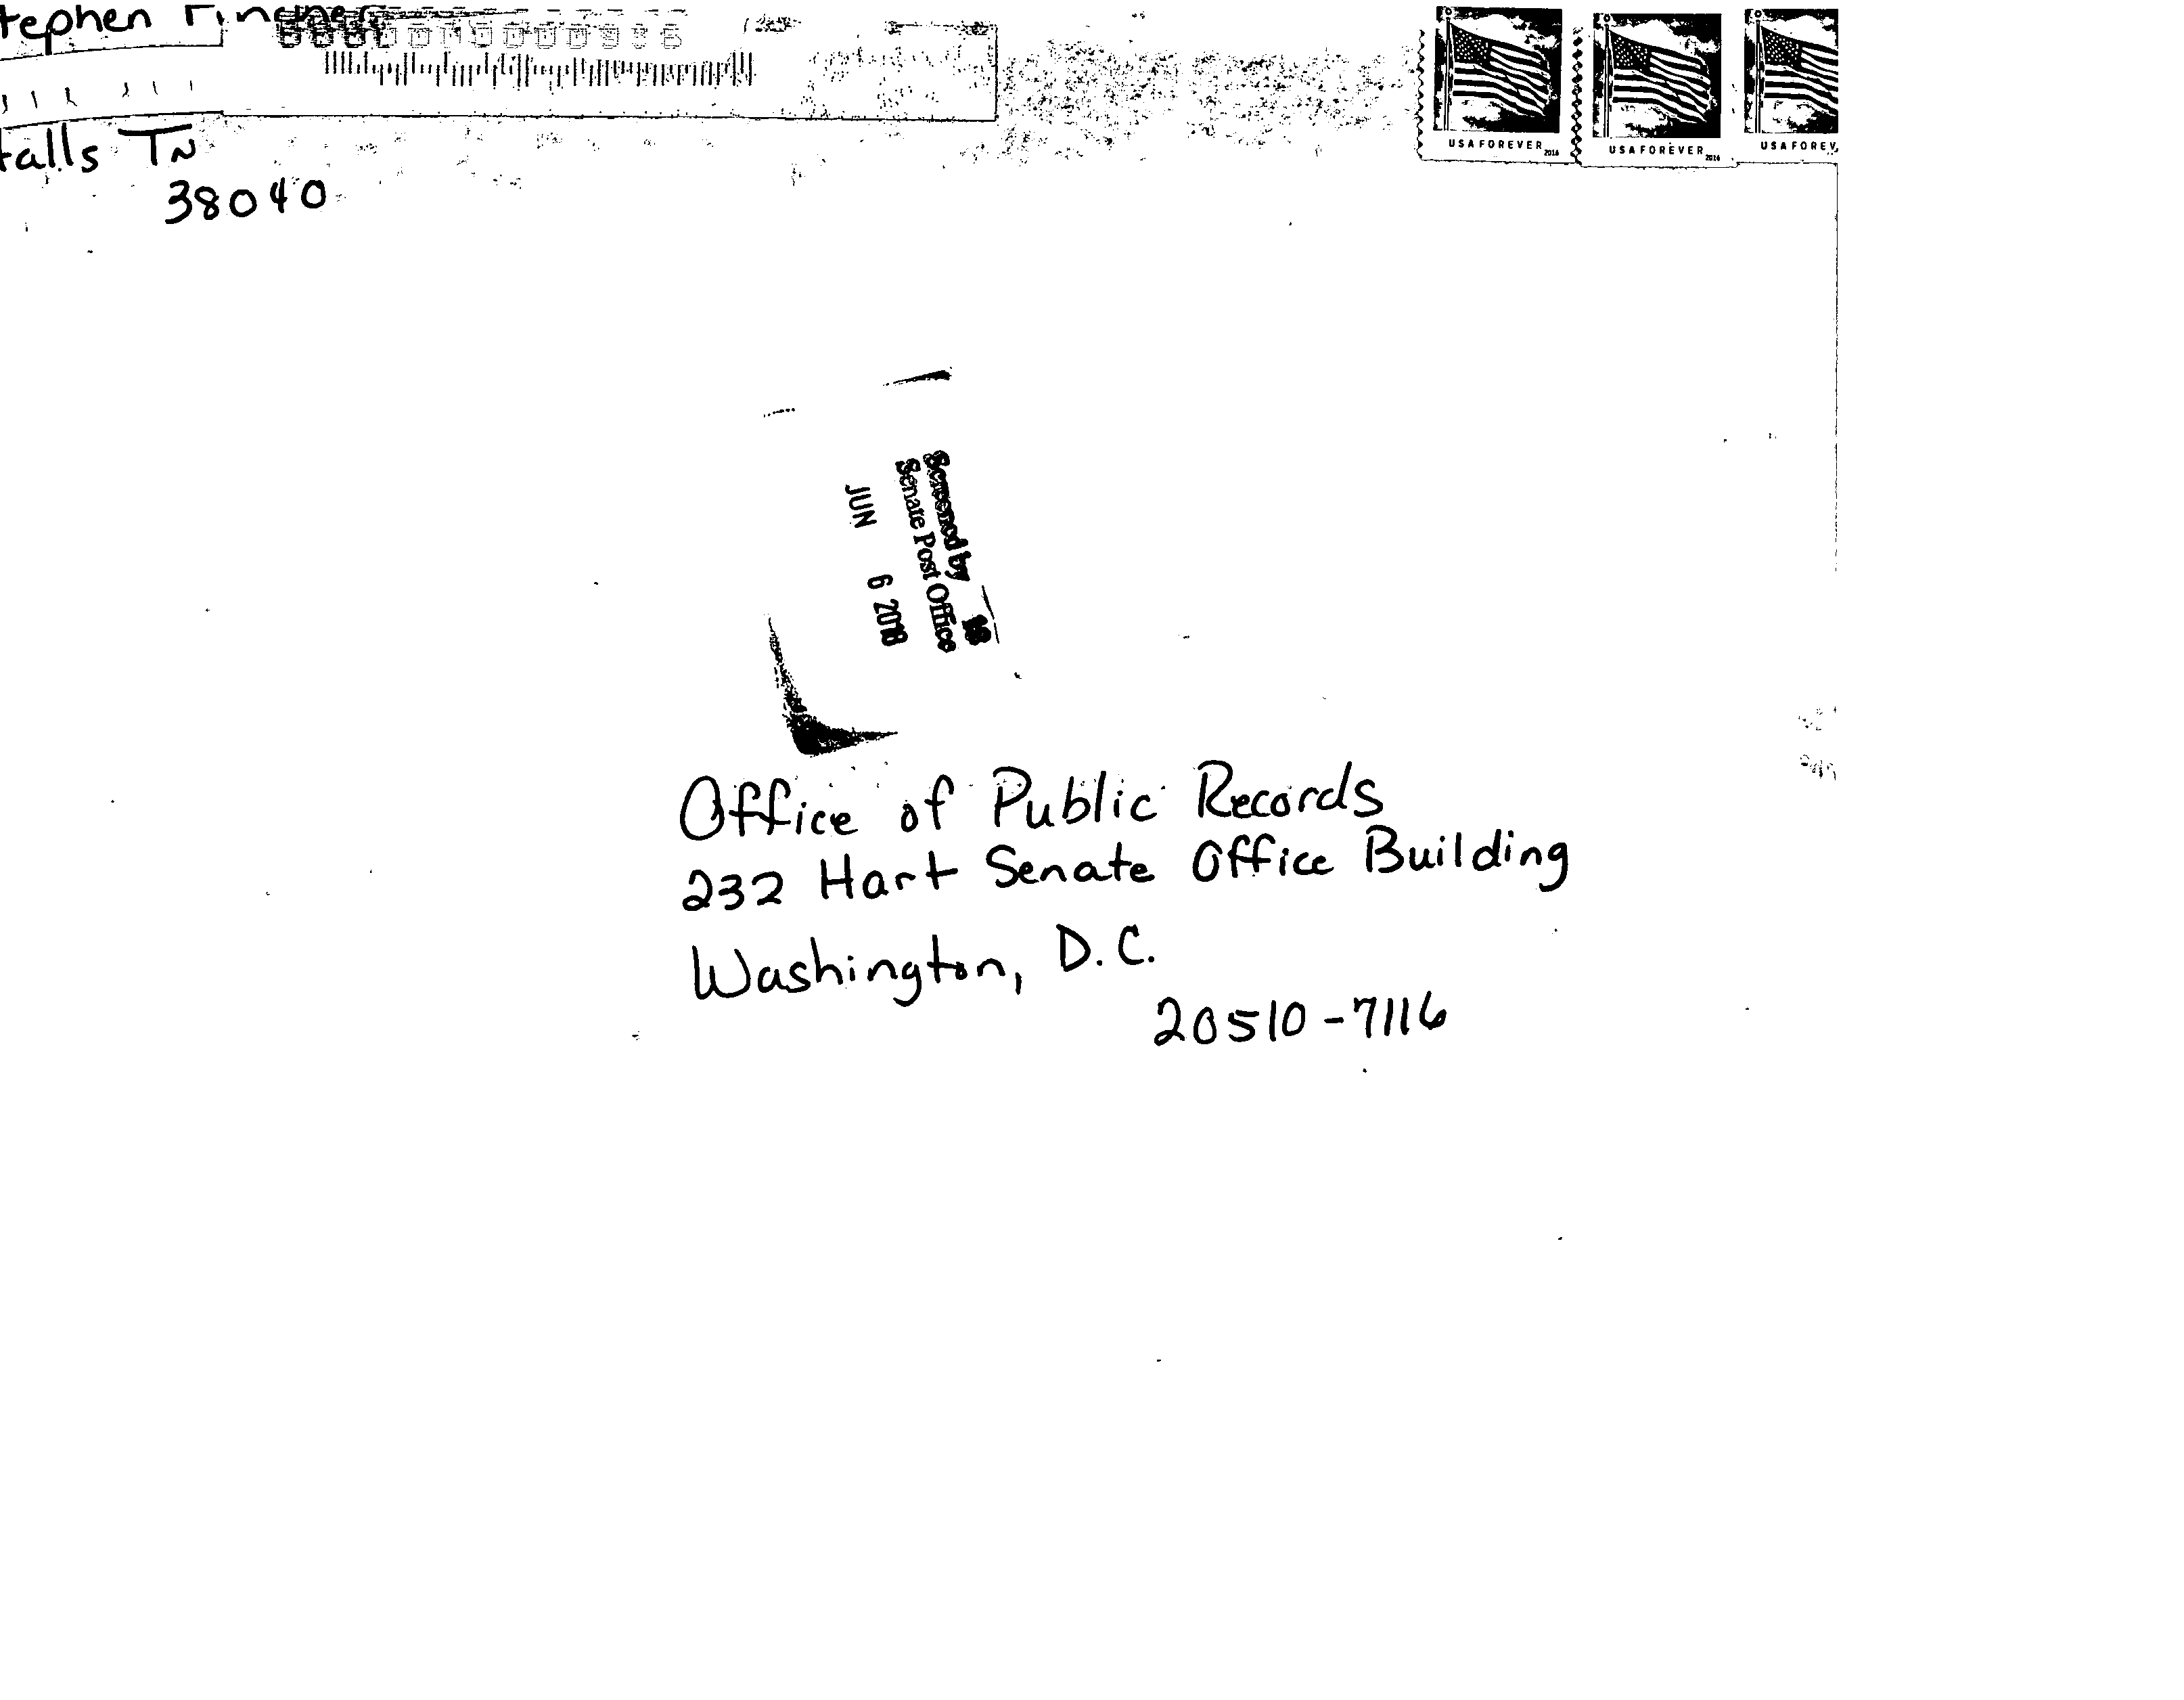 tephen Fincher
talls TN
38040
USA FOREVER 2016
USA FOREVER 2016
USA FOREV
Screened by
Senate Post Office
JUN 6 2018
Office of Public Records
232 Hart Senate Office Building
Washington, D.C.
20510-7116